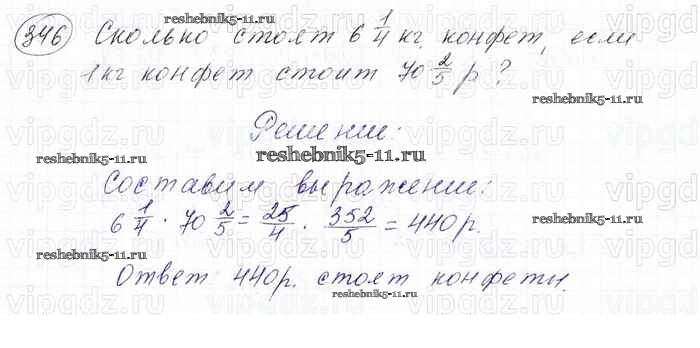 reshebnik5-11.ru
346 Сколько стоят 6 1/4 кг. конфет, если
1 кг конфет стоит 70 2/5 р?
reshebnik5-11.ru
vipgdz.ru
Решение:
reshebnik5-11.ru
reshebnik5-11.ru
Составим выражение:
6 1/4 · 70 2/5 = 25/4 · 352/5 = 440р.
reshebnik5-11.ru
reshebnik5-11.ru
Ответ 440р. стоят конфеты.
reshebnik5-11.ru